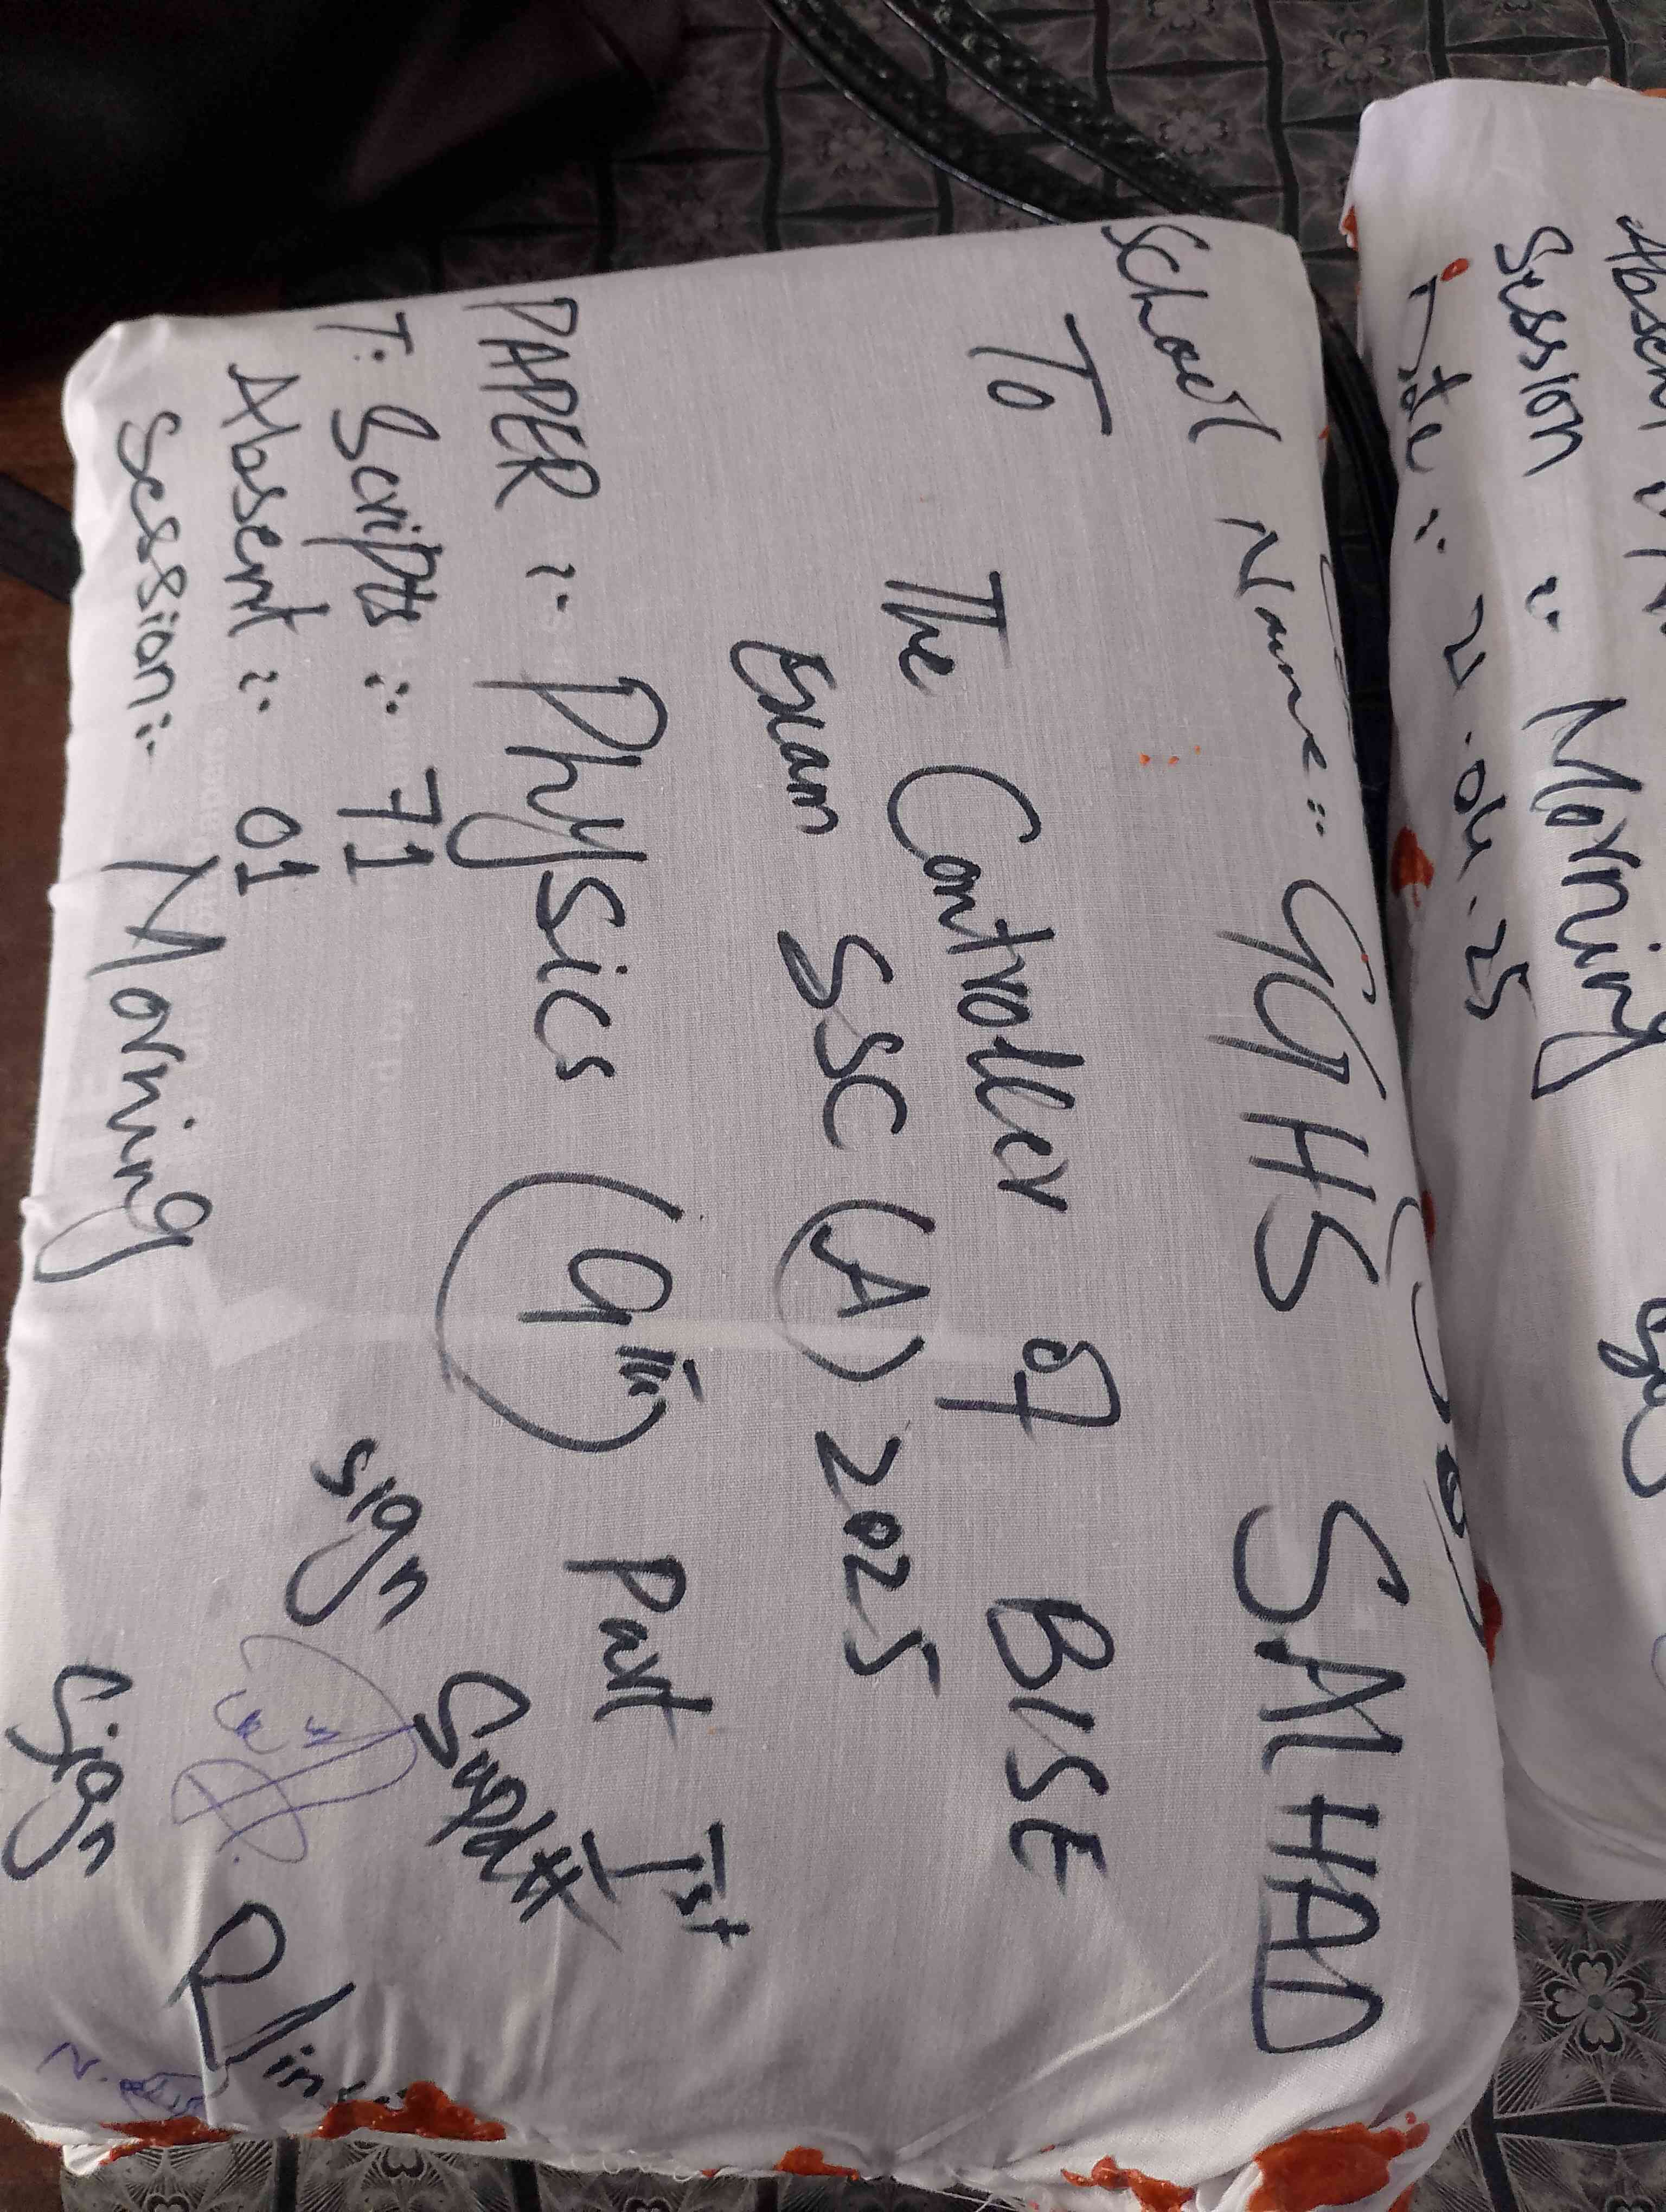 School Name:- GGHS SAMHAD
To
The Controller of BISE
Exam SSC (A) 2025
PAPER :- Physics (9th) Part Ist
T. Scripts :- 71
Absent :- 01
Session:- Morning
Sign Supdtt
Sign
Absent
Session :- Morning
Date :-